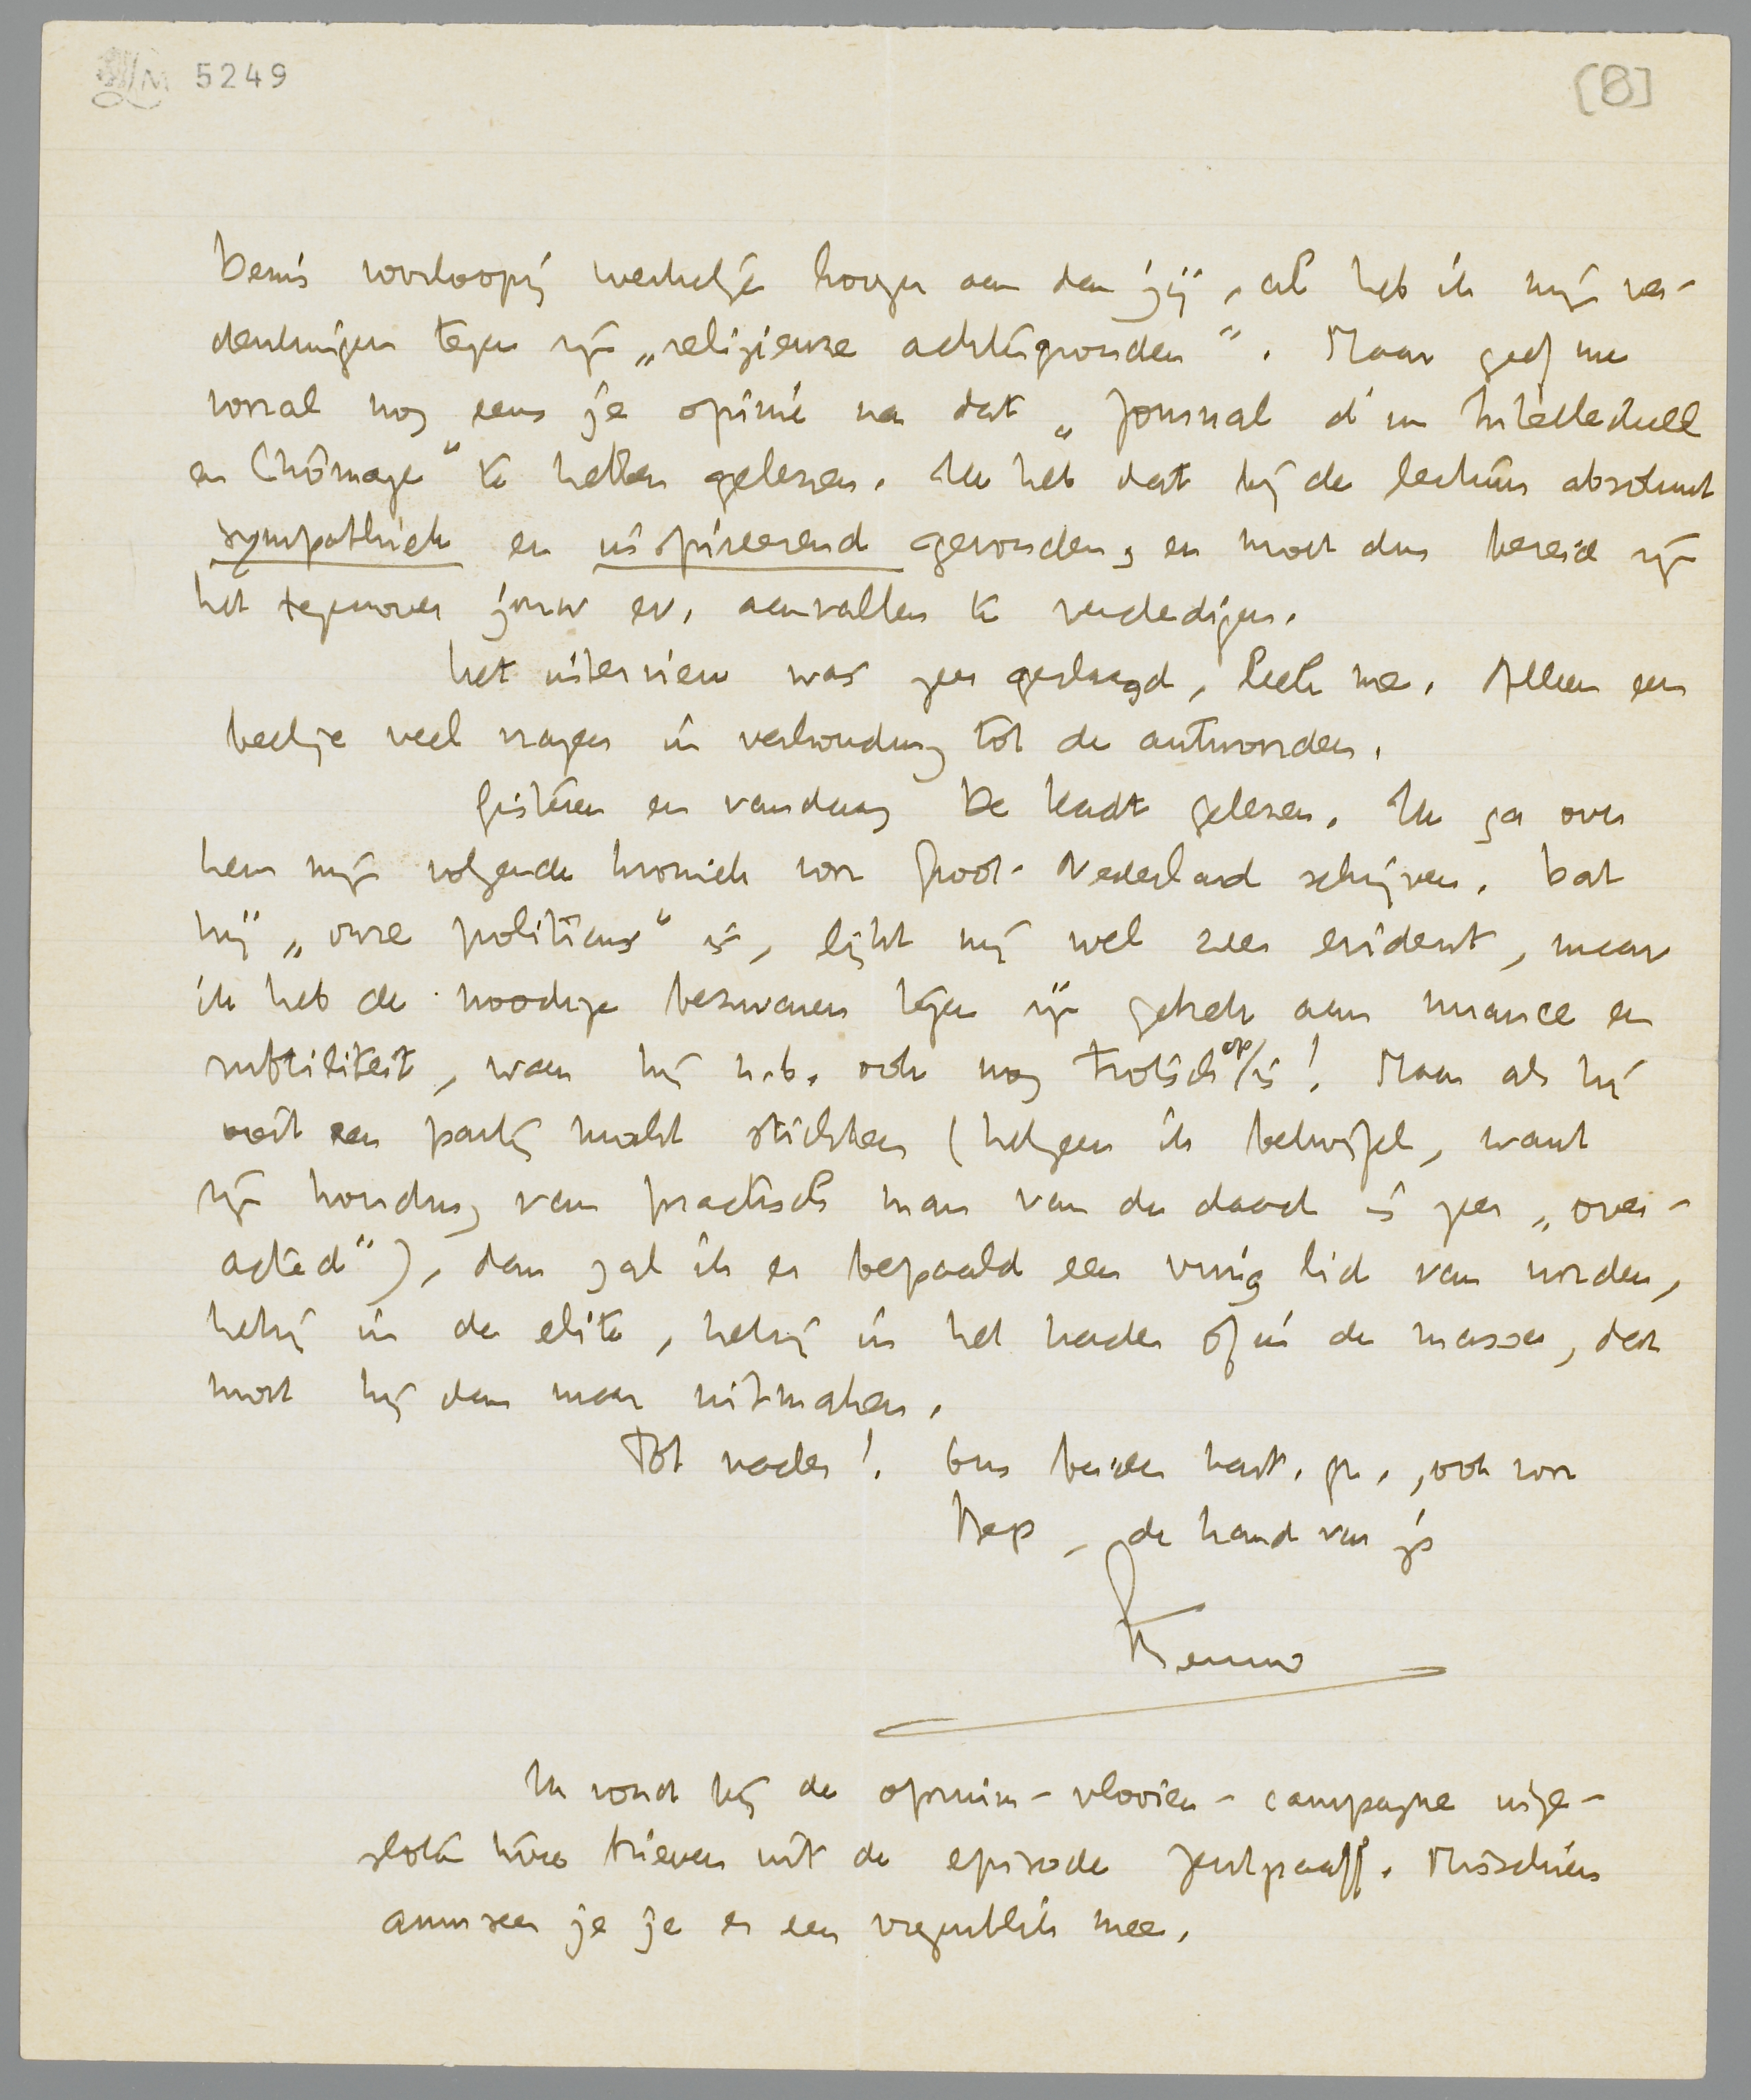 LM 5249
[8]
Denis voorloopig werkelijk hooger aan dan jij, al heb ik mijn ver-
denkingen tegen zijn „religieuze achtergronden". Maar geef me
vooral nog eens je opinie na dat „Journal d'un Intellectuell
en Chômage" te hebben gelezen. Ik heb dat bij de lectuur absoluut
sympathiek en inspireerend gevonden, en moet dus bereid zijn
het tegenover jouw ev. aanvallen te verdedigen.
Het interview was zeer geslaagd, leek me. Alleen een
beetje veel vragen in verhouding tot de antwoorden.
Gisteren en vandaag De Kadt gelezen. Ik ga over
hem mijn volgende kroniek voor Groot-Nederland schrijven. Dat
hij „onze politicus" is, lijkt mij wel zeer evident, maar
ik heb de noodige bezwaren tegen zijn gebrek aan nuance en
subtiliteit, waar hij n.b. ook nog trotsch op/is! Maar als hij
ooit een partij mocht stichten (hetgeen ik betwijfel, want
zijn houding van practisch man van de daad is zeer „over-
acted"), dan zal ik er bepaald een vurig lid van worden,
hetzij in de elite, hetzij in het kader of in de massa, dat
moet hij dan maar uitmaken.
Tot nader! Ons beider hart. gr., ook voor
Bep, de hand van je
Menno
Ik vond bij de opruim-vlooien-campagne inge-
sloten twee brieven uit de episode Jentgraaff. Misschien
amuseer je je er een oogenblik mee.